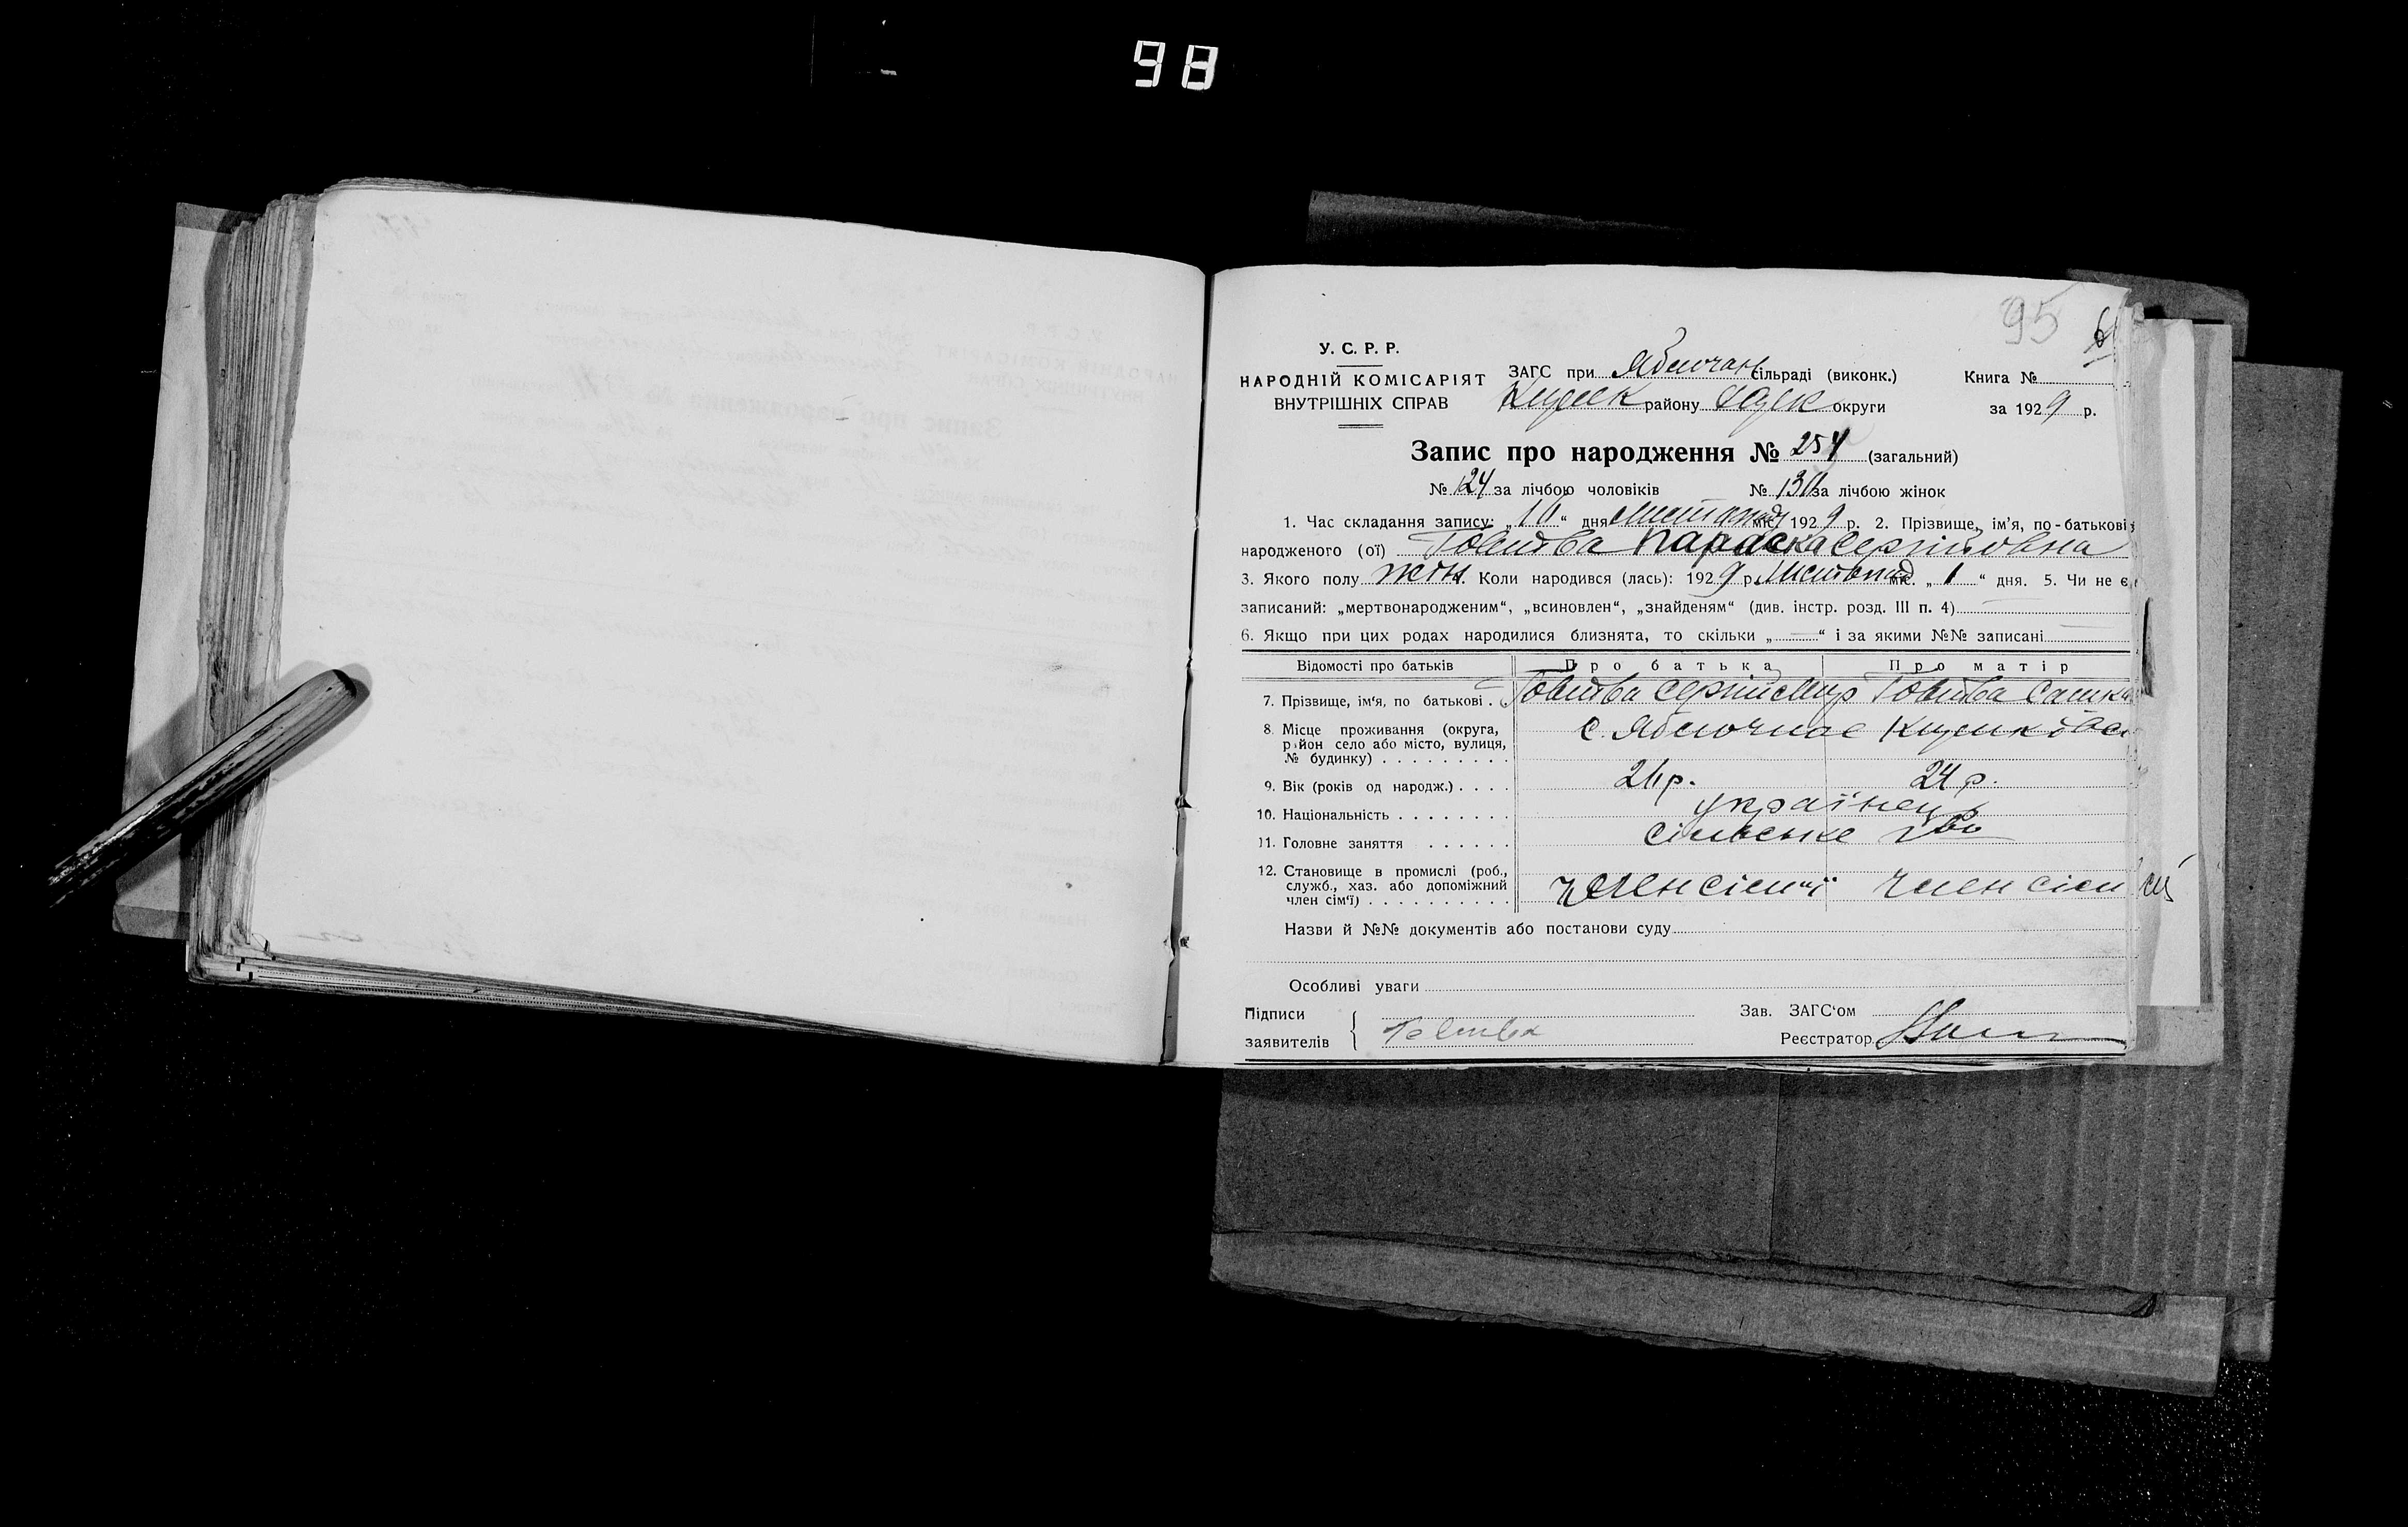 98
95
У. С. Р. Р.
НАРОДНІЙ КОМІСАРІЯТ
ВНУТРІШНІХ СПРАВ
ЗАГС при Яблочан сільраді (виконк.)
району округи
Книга №
за 1929 р.
Запис про народження № 254 (загальний)
№ 124 за лічбою чоловіків № 130 за лічбою жінок
1. Час складання запису: „10“ дня листопад міс. 1929 р. 2. Прізвище, ім'я, по-батькові
народженого (ої) Товитва Параска Сергійовна
3. Якого полу жін. Коли народився (лась): 1929 р. Листопад міс. „1“ дня. 5. Чи не є
записаний: „мертвонародженим“, „всиновлен“, „знайденям“ (див. інстр. розд. III п. 4)
6. Якщо при цих родах народилися близнята, то скільки „—“ і за якими №№ записані
Відомості про батьків Про батька Про матір
7. Прізвище, ім'я, по батькові . Товитва Сергій Товитва
8. Місце проживання (округа, район село або місто, вулиця, № будинку) . . . . . . . . . с. Яблочное
9. Вік (років од народж.) . . . . 24 р. 24 р.
10. Національність . . . . . . . . українець
11. Головне заняття . . . . . . сільське г-во
12. Становище в промислі (роб., служб., хаз. або допоміжний член сім'ї) . . . . . . . . . . член сім'ї член сім
Назви й №№ документів або постанови суду
Особливі уваги
Підписи
заявителів
Товитва
Зав. ЗАГС'ом
Реєстратор